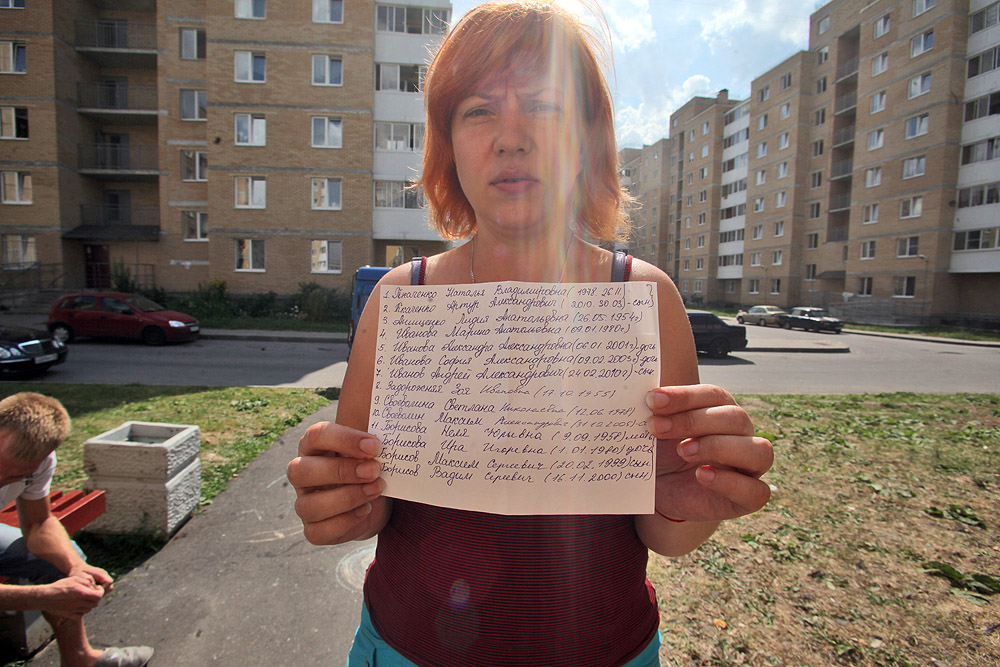 1. Ткаченко Наталья Владимировна (1978 26.11)
2. Ткаченко Артур Александрович (2010. 30.03 - сын)
3. Анищенко Лидия Анатольевна (26.05.1954г)
4. Иванова Марина Анатольевна (09.01.1980г)
5. Иванова Александра Александровна (06.01.2001г)-дочь
6. Иванова София Александровна (09.02.2003г)-дочь
7. Иванов Андрей Александрович (24.02.2010г)-сын
8. Задорожная Зоя Ивановна (17.10.1955)
9. Своевалина Светлана Николаевна (12.06.1978)
10. Своевалин Максим Александрович
11. Борисова Неля Юрьевна (9.09.1957)мать
Борисова Ира Игоревна (1.01.1980)дочь
Борисов Максим Сергеевич (10.02.1999)сын
Борисов Вадим Сергеевич (16.11.2000)сын)